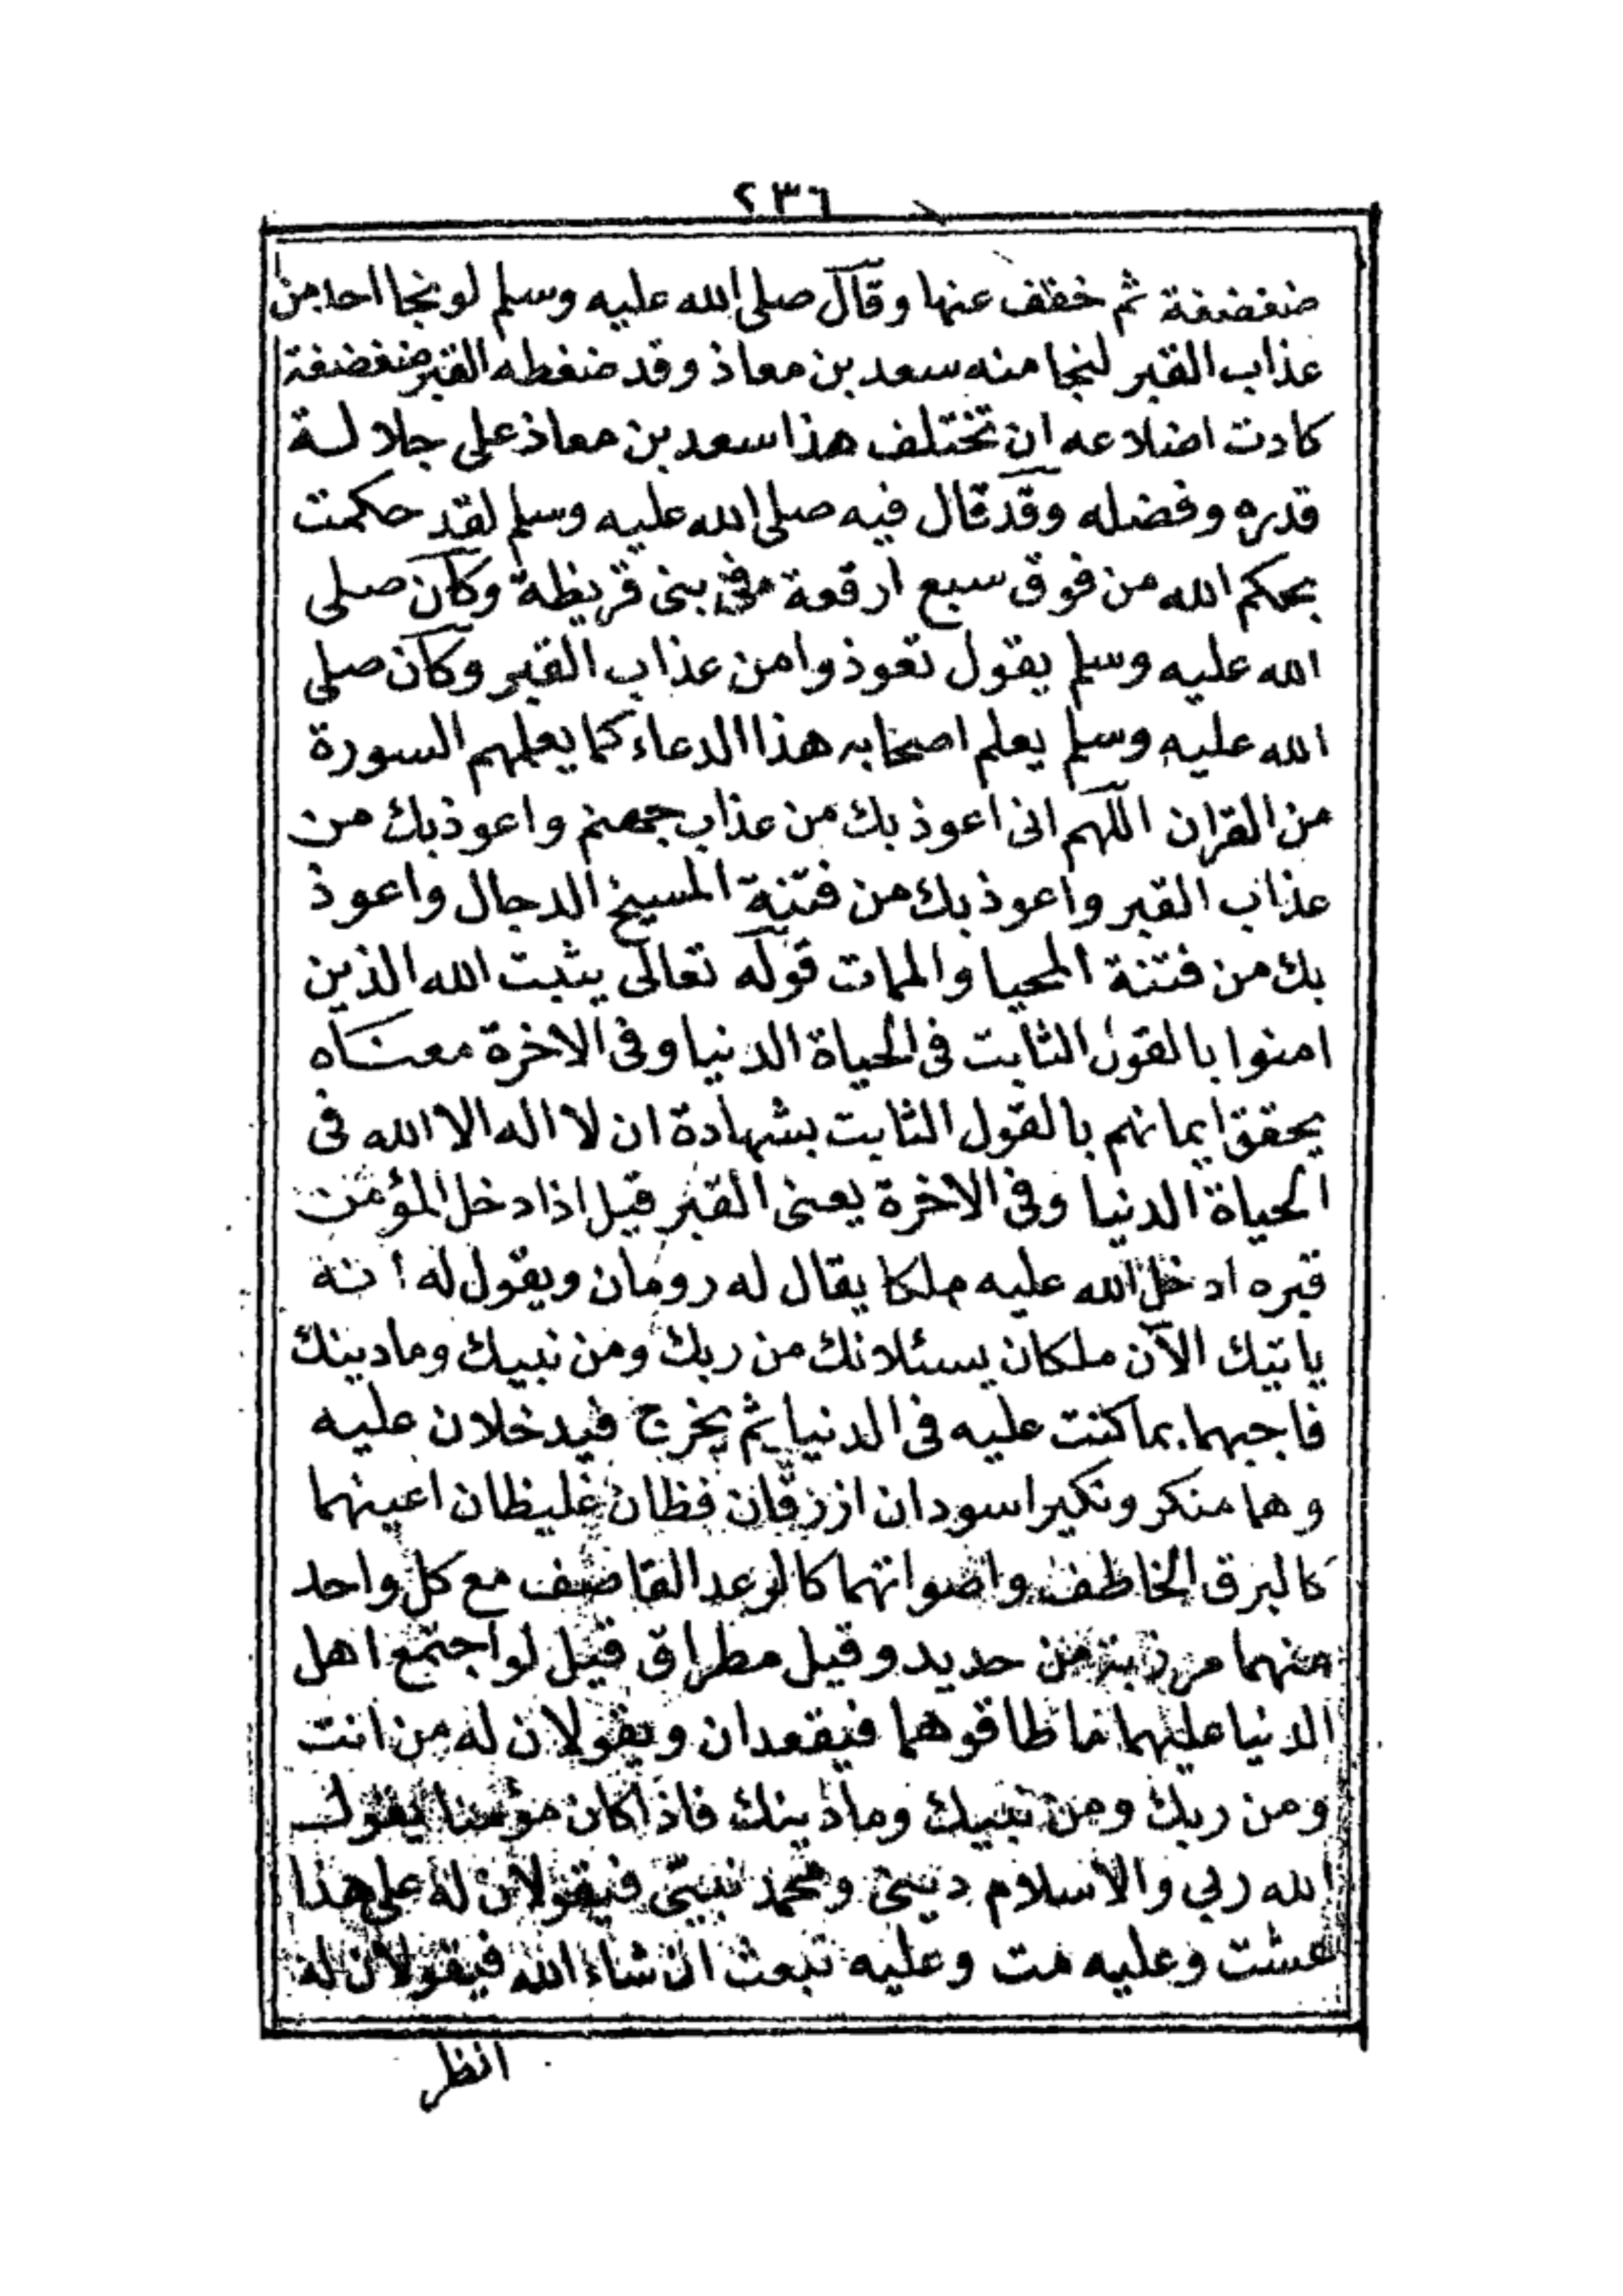 ٢٣٦
ضغضغة ثم خفف عنها وقال صلى الله عليه وسلم لو نجا احد من
عذاب القبر لنجا منه سعد بن معاذ وقد ضغطه القبر ضغضغة
كادت اضلاعه ان تختلف هذا سعد بن معاذ على جلالة
قدره وفضله وقد قال فيه صلى الله عليه وسلم لقد حكمت
بحكم الله من فوق سبع ارقعة في بنى قريظة وكان صلى
الله عليه وسلم يقول تعوذوا من عذاب القبر وكان صلى
الله عليه وسلم يعلم اصحابه هذا الدعاء كما يعلمهم السورة
من القران اللهم انى اعوذ بك من عذاب جهنم واعوذ بك من
عذاب القبر واعوذ بك من فتنة المسيخ الدجال واعوذ
بك من فتنة المحيا والممات قوله تعالى يثبت الله الذين
امنوا بالقول الثابت فى الحياة الدنيا وفى الاخرة معناه
يحقق ايمانهم بالقول الثابت بشهادة ان لا اله الا الله فى
الحياة الدنيا وفى الاخرة يعنى القبر قيل اذا دخل المؤمن
قبره ادخل الله عليه ملكا يقال له رومان ويقول له انه
ياتيك الآن ملكان يسئلانك من ربك ومن نبيك وما دينك
فاجبهما بما كنت عليه فى الدنيا ثم يخرج فيدخلان عليه
وهما منكر ونكير اسودان ازرقان فظان غليظان اعينهما
كالبرق الخاطف واصواتهما كالرعد القاصف مع كل واحد
منهما مرزبة من حديد وقيل مطراق قيل لو اجتمع اهل
الدنيا عليهما ما طاقوهما فيقعدان ويقولان له من انت
ومن ربك ومن نبيك وما دينك فاذا كان مؤمنا يقول
الله ربى والاسلام دينى ومحمد نبيّى فيقولان له على هذا
عشت وعليه مت وعليه تبعث ان شاء الله فيقولان له
انظر